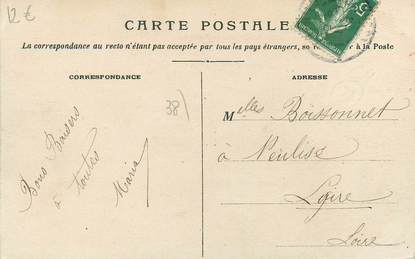 12 €
CARTE POSTALE
La correspondance au recto n'étant pas acceptée par tous les pays étrangers, se à la Poste
CORRESPONDANCE
ADRESSE
38)
Bons Baisers
à toutes
Maria
Melles Boissonnet
à Neulise
Loire
Loire
5